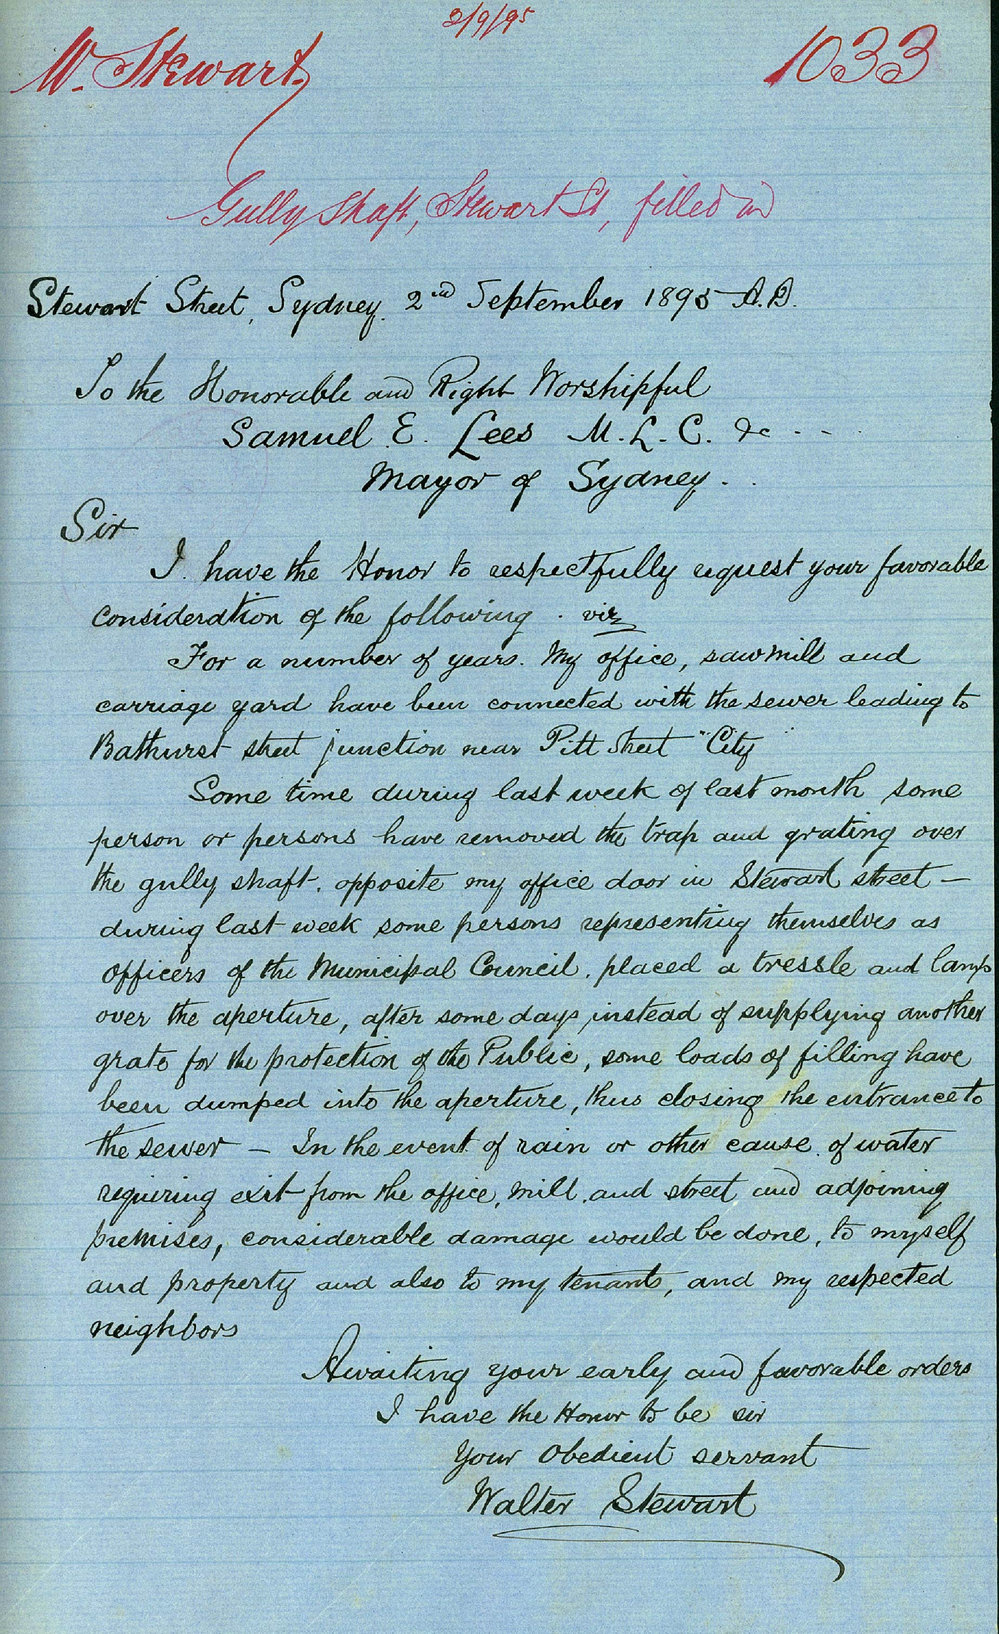 2/9/95
W. Stewart.
1033
Gully Shaft, Stewart St, filled in
Stewart Street, Sydney. 2nd September 1895 A.D.
To the Honorable and Right Worshipful
Samuel E. Lees M. L. C. &c - -
Mayor of Sydney. .
Sir
I have the Honor to respectfully request your favorable
consideration of the following . viz
For a number of years. My office, sawmill and
carriage yard have been connected with the sewer leading to
Bathurst street junction near Pitt Street "City"
Some time during last week of last month some
person or persons have removed the trap and grating over
the gully shaft. opposite my office door in Stewart street -
during last week some persons representing themselves as
officers of the Municipal Council, placed a tressle and lamp
over the aperture, after some days, instead of supplying another
grate for the protection of the Public, some loads of filling have
been dumped into the aperture, thus closing the entrance to
the sewer - In the event of rain or other cause of water
requiring exit from the office, mill, and street and adjoining
premises, considerable damage would be done, to myself
and property and also to my tenants, and my respected
neighbors
Awaiting your early and favorable orders
I have the Honor to be sir
Your Obedient servant
Walter Stewart